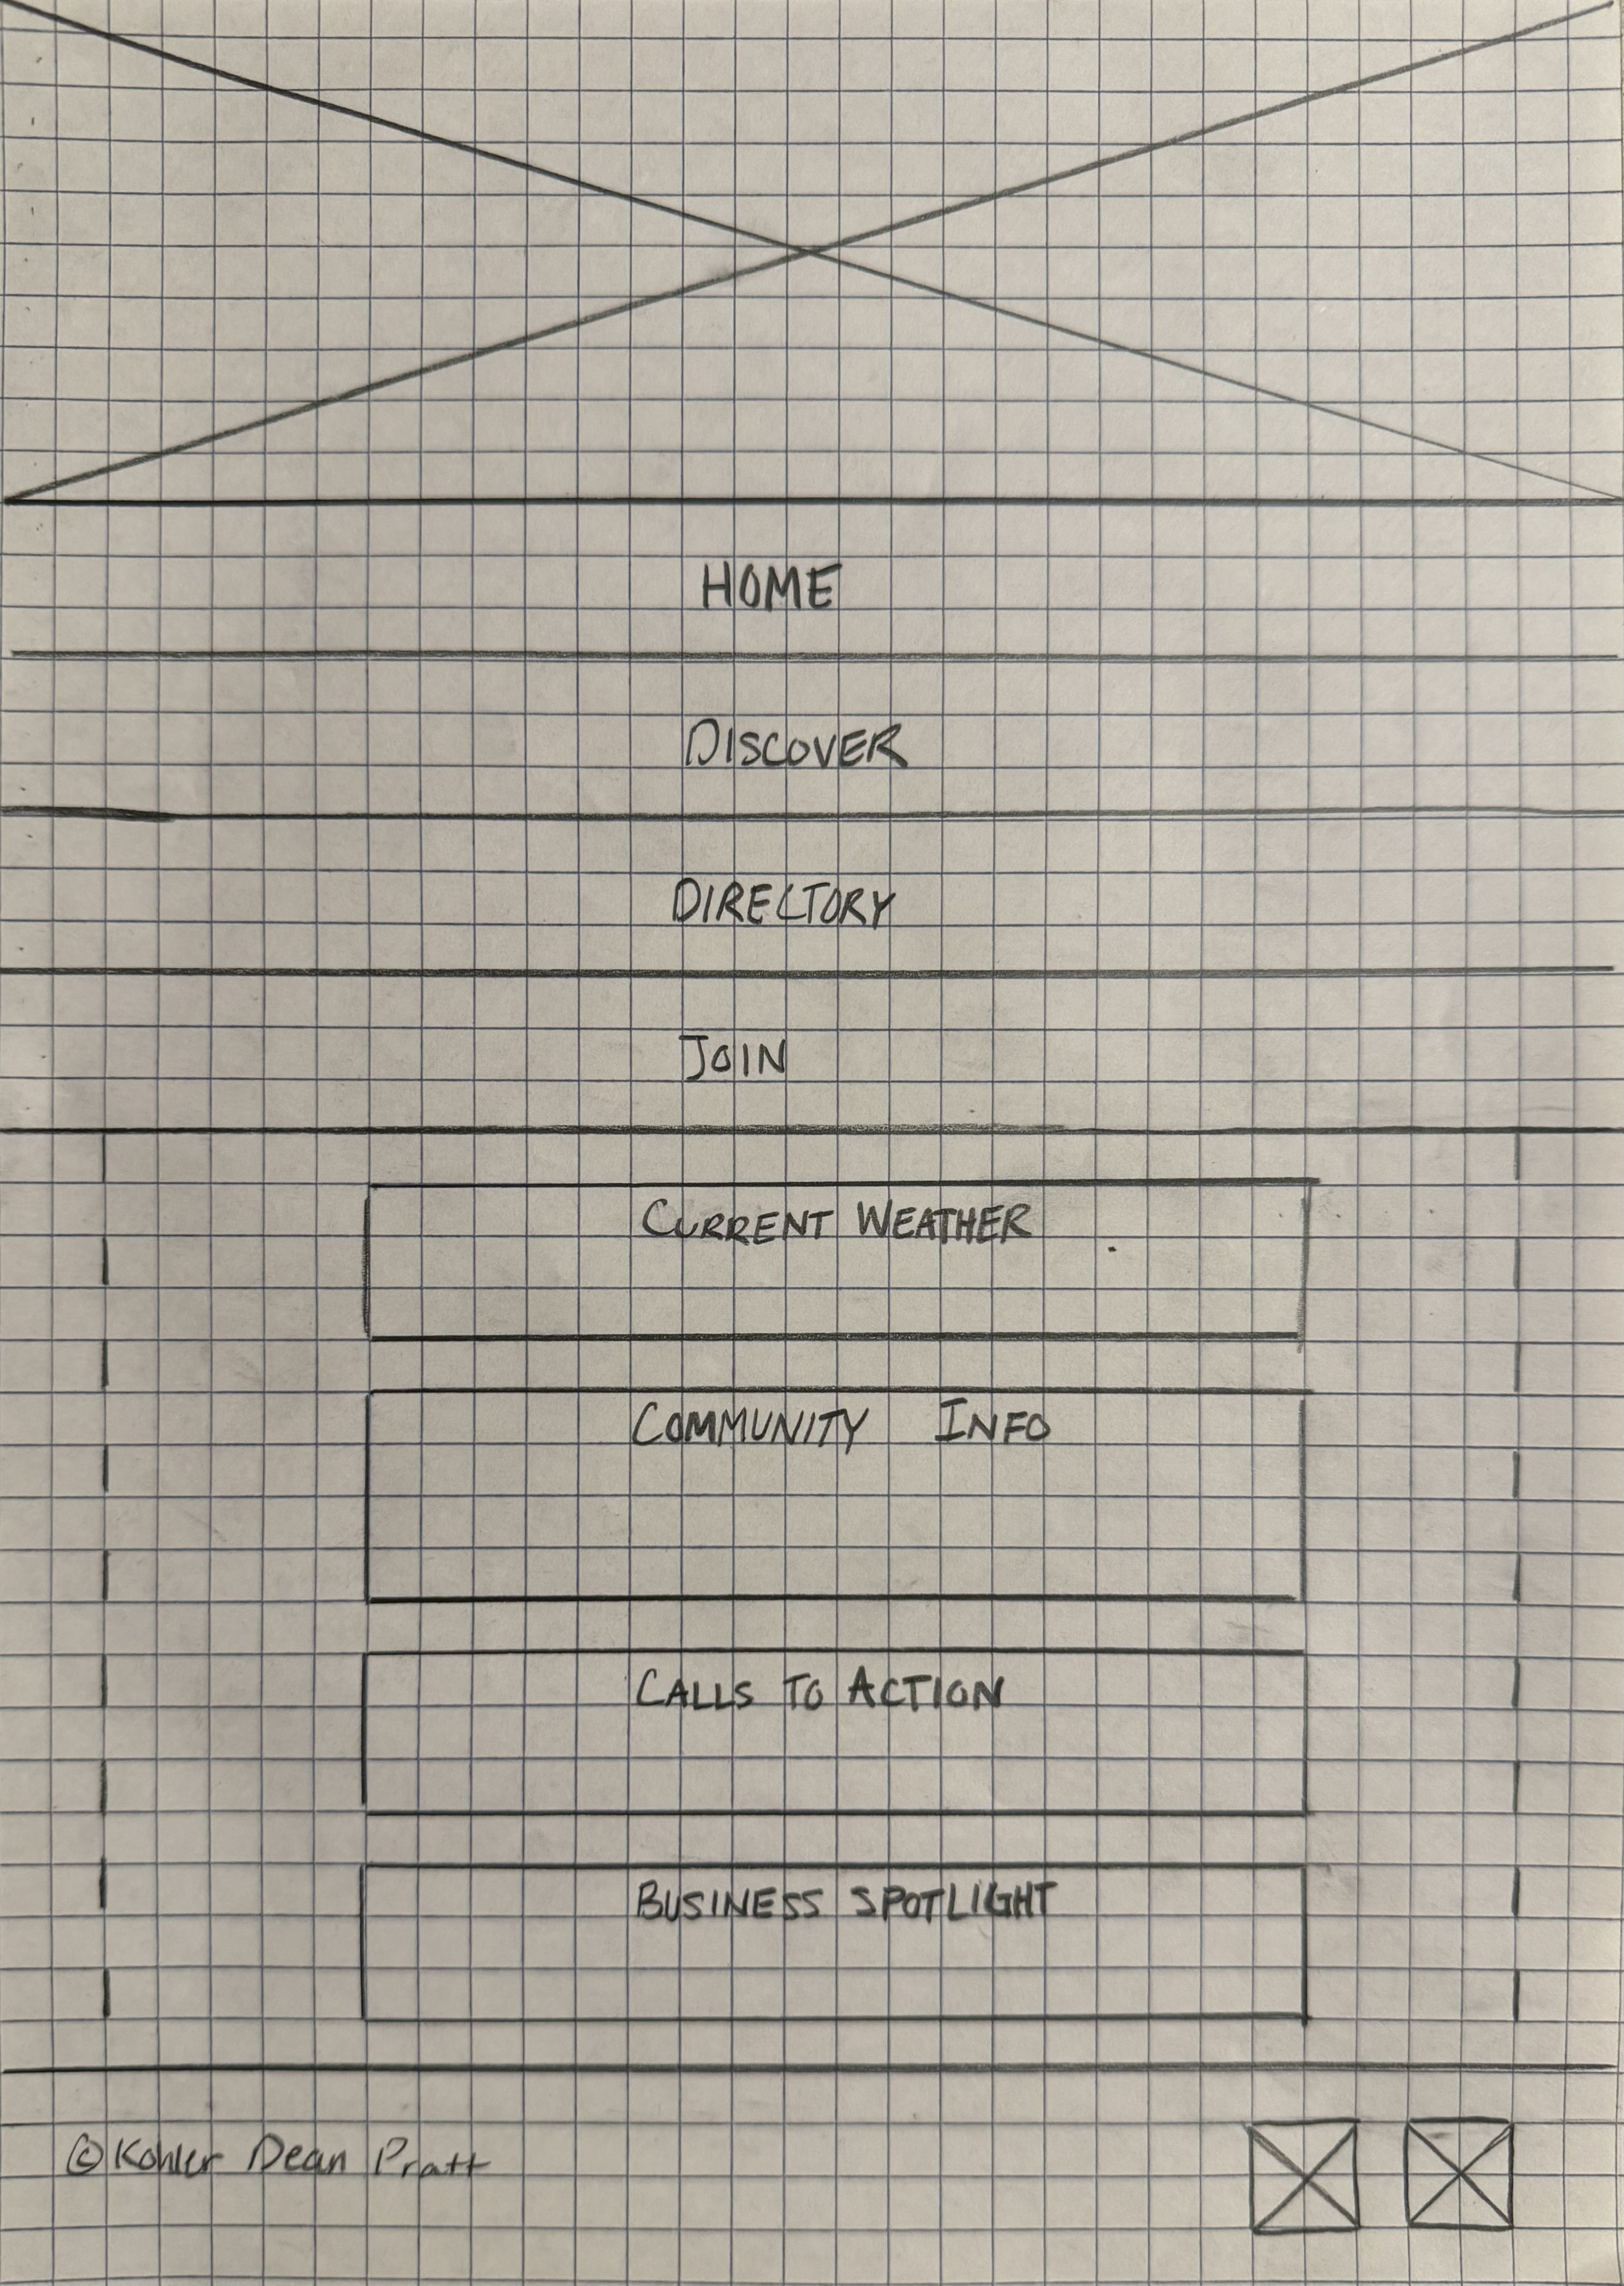 HOME
DISCOVER
DIRECTORY
JOIN
CURRENT WEATHER
COMMUNITY INFO
CALLS TO ACTION
BUSINESS SPOTLIGHT
©Kohler Dean Pratt